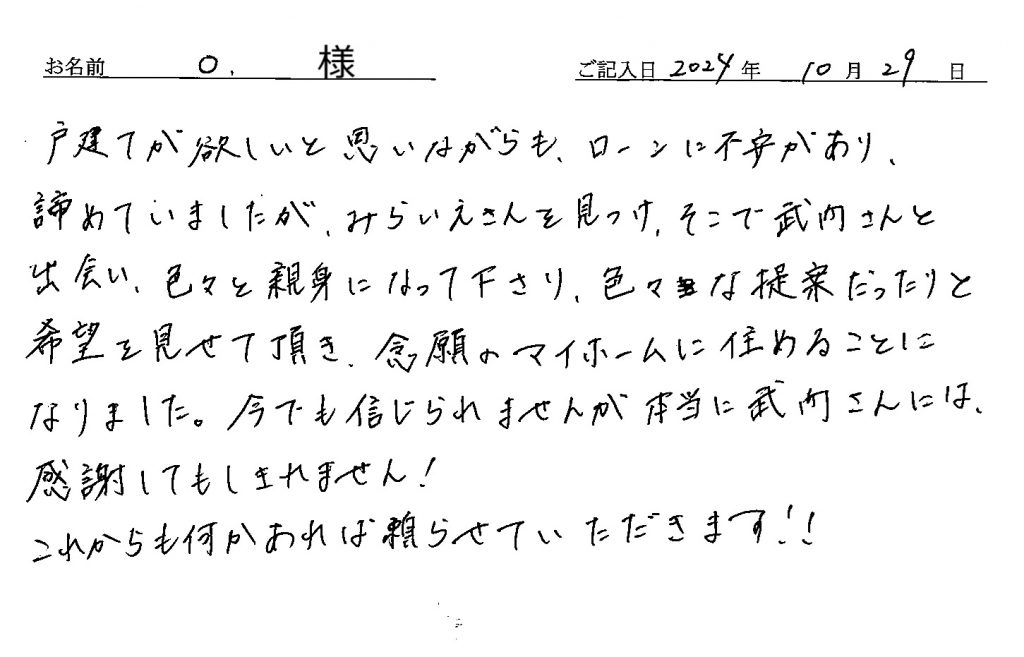 お名前 O. 様 ご記入日 2024年 10月 29日
戸建てが欲しいと思いながらも、ローンに不安があり、
諦めていましたが、みらいえさんを見つけ、そこで武内さんと
出会い、色々と親身になって下さり、色々な提案だったりと
希望を見せて頂き、念願のマイホームに住めることに
なりました。今でも信じられませんが本当に武内さんには、
感謝してもしきれません!
これからも何かあれば頼らせていただきます!!